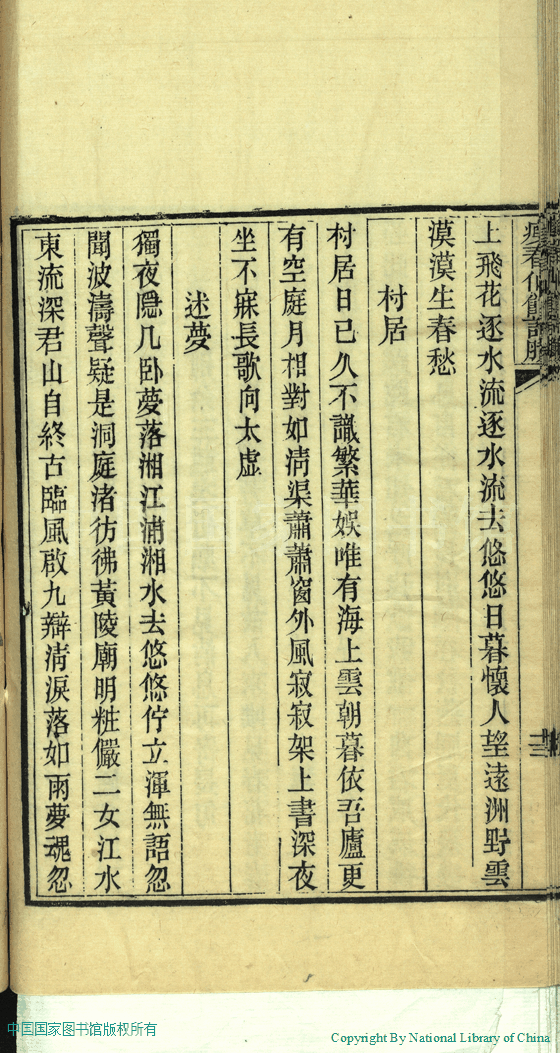 上飛花逐水流逐水流去悠悠日暮懷人望遠洲野雲
漠漠生春愁
村居
村居日已久不識繁華娛唯有海上雲朝暮依吾廬更
有空庭月相對如清渠蕭蕭窗外風寂寂架上書深夜
坐不寐長歌向太虛
述夢
獨夜隱几卧夢落湘江浦湘水去悠悠佇立渾無語忽
聞波濤聲疑是洞庭渚彷彿黃陵廟明粧儼二女江水
東流深君山自終古臨風啟九辯清淚落如雨夢魂忽
中国国家图书馆版权所有
Copyright By National Library of China